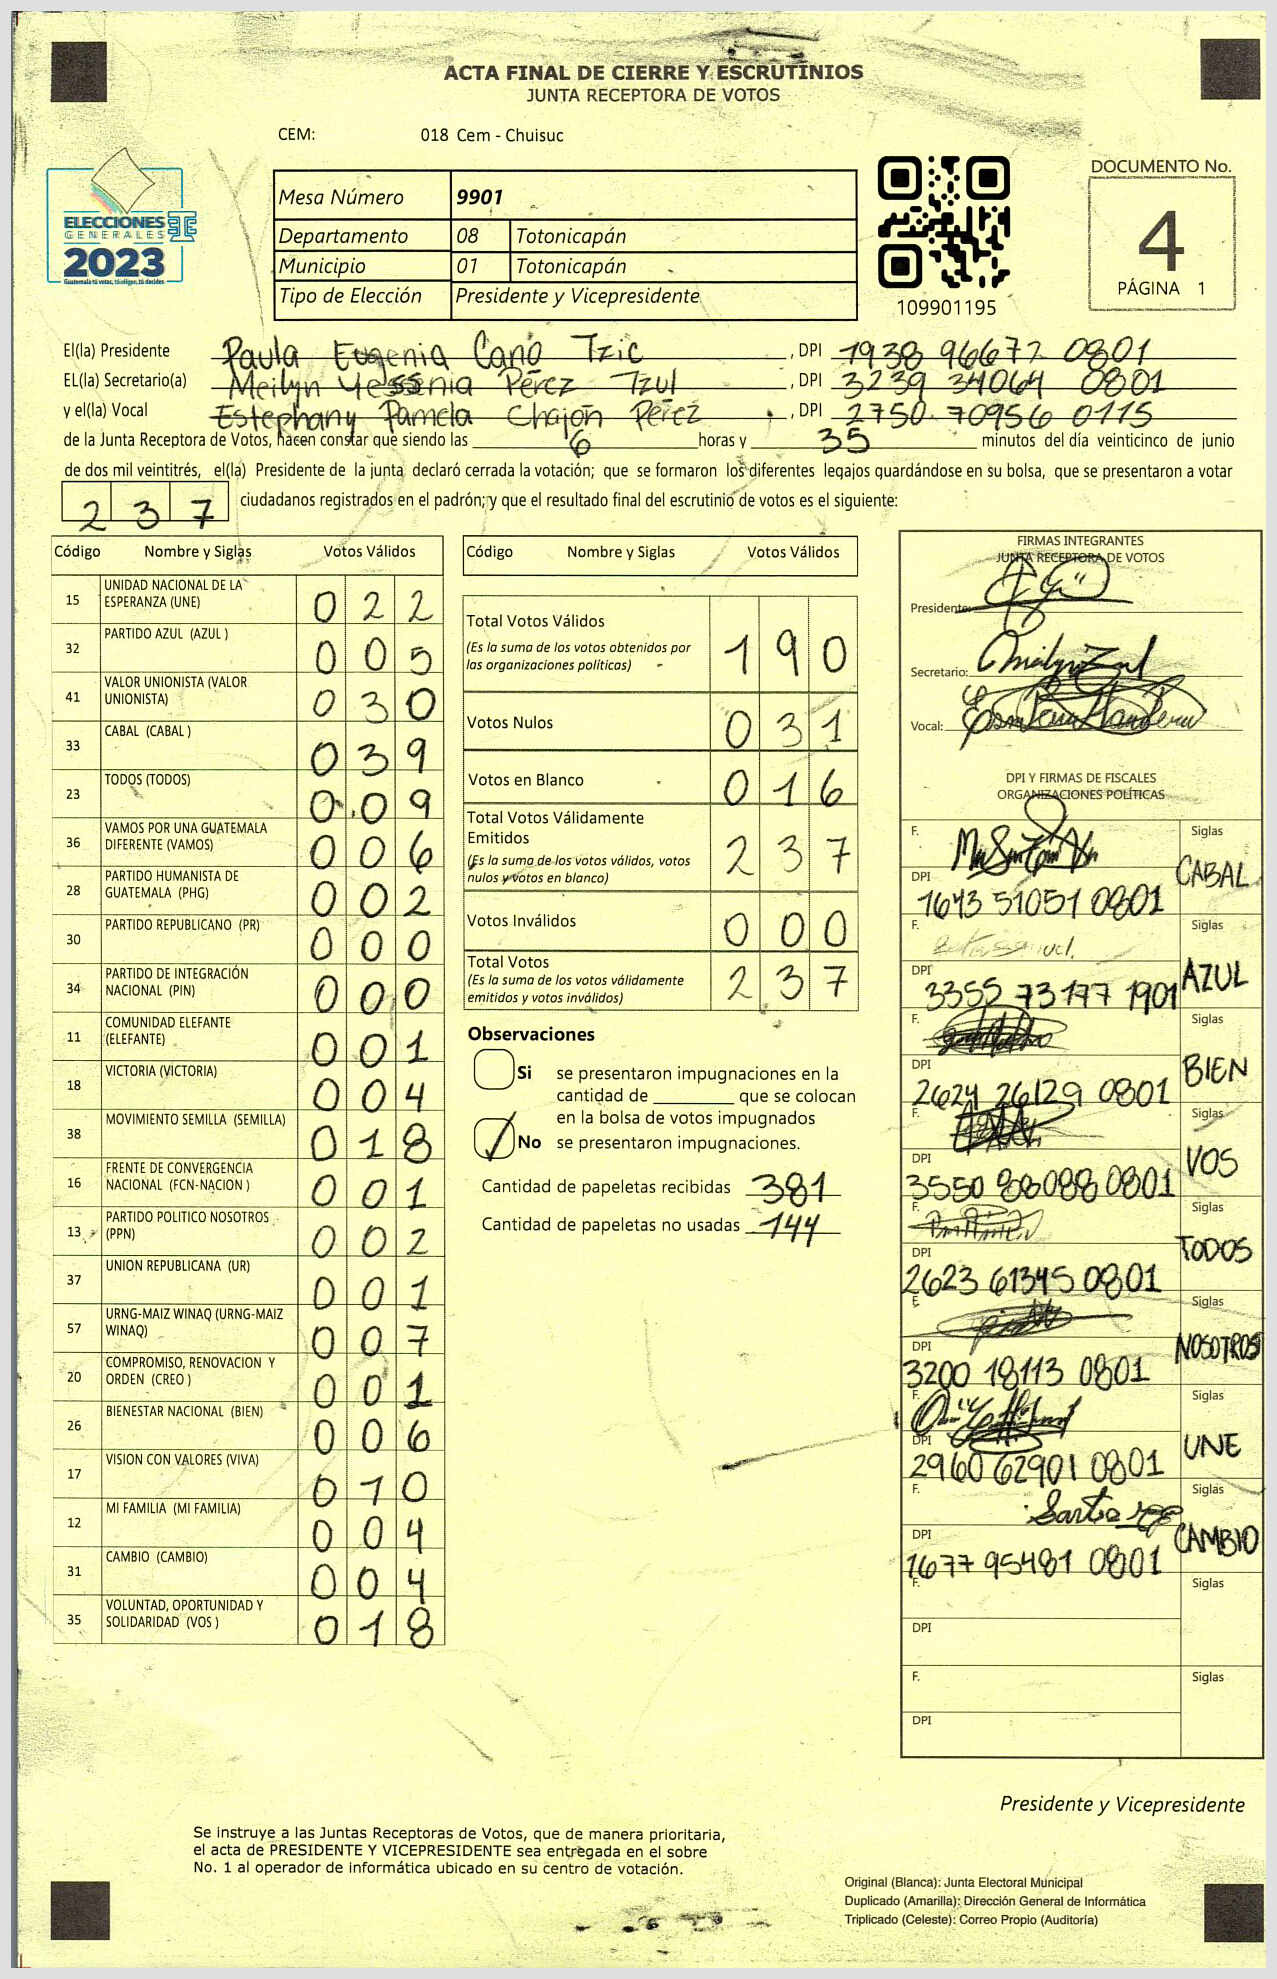 ACTA FINAL DE CIERRE Y ESCRUTINIOS
JUNTA RECEPTORA DE VOTOS
CEM: 018 Cem - Chuisuc
ELECCIONES
GENERALES
2023
Guatemala tú votas, tú eliges, tú decides
Mesa Número 9901
Departamento 08 Totonicapán
Municipio 01 Totonicapán
Tipo de Elección Presidente y Vicepresidente
109901195
DOCUMENTO No.
4
PÁGINA 1
El(la) Presidente Paula Eugenia Cano Tzic , DPI 1938 96672 0801
EL(la) Secretario(a) Meilyn Yessenia Pérez Tzul , DPI 3239 34064 0801
y el(la) Vocal Estephany Pamela Chajón Pérez , DPI 2750 70956 0115
de la Junta Receptora de Votos, hacen constar que siendo las 6 horas y 35 minutos del día veinticinco de junio
de dos mil veintitrés, el(la) Presidente de la junta declaró cerrada la votación; que se formaron los diferentes legajos guardándose en su bolsa, que se presentaron a votar
237 ciudadanos registrados en el padrón; y que el resultado final del escrutinio de votos es el siguiente:
Código Nombre y Siglas Votos Válidos
15 UNIDAD NACIONAL DE LA ESPERANZA (UNE) 022
32 PARTIDO AZUL (AZUL ) 005
41 VALOR UNIONISTA (VALOR UNIONISTA) 030
33 CABAL (CABAL ) 039
23 TODOS (TODOS) 009
36 VAMOS POR UNA GUATEMALA DIFERENTE (VAMOS) 006
28 PARTIDO HUMANISTA DE GUATEMALA (PHG) 002
30 PARTIDO REPUBLICANO (PR) 000
34 PARTIDO DE INTEGRACIÓN NACIONAL (PIN) 000
11 COMUNIDAD ELEFANTE (ELEFANTE) 001
18 VICTORIA (VICTORIA) 004
38 MOVIMIENTO SEMILLA (SEMILLA) 018
16 FRENTE DE CONVERGENCIA NACIONAL (FCN-NACION ) 001
13 PARTIDO POLITICO NOSOTROS (PPN) 002
37 UNION REPUBLICANA (UR) 001
57 URNG-MAIZ WINAQ (URNG-MAIZ WINAQ) 007
20 COMPROMISO, RENOVACION Y ORDEN (CREO ) 001
26 BIENESTAR NACIONAL (BIEN) 006
17 VISION CON VALORES (VIVA) 010
12 MI FAMILIA (MI FAMILIA) 004
31 CAMBIO (CAMBIO) 004
35 VOLUNTAD, OPORTUNIDAD Y SOLIDARIDAD (VOS ) 018
Código Nombre y Siglas Votos Válidos
Total Votos Válidos 190
(Es la suma de los votos obtenidos por
las organizaciones politicas)
Votos Nulos 031
Votos en Blanco 016
Total Votos Válidamente
Emitidos 237
(Es la suma de los votos válidos, votos
nulos y votos en blanco)
Votos Inválidos 000
Total Votos 237
(Es la suma de los votos válidamente
emitidos y votos inválidos)
Observaciones
Si se presentaron impugnaciones en la
cantidad de ________ que se colocan
en la bolsa de votos impugnados
No se presentaron impugnaciones.
Cantidad de papeletas recibidas 381
Cantidad de papeletas no usadas 144
FIRMAS INTEGRANTES
JUNTA RECEPTORA DE VOTOS
Presidente:
Secretario:
Vocal:
DPI Y FIRMAS DE FISCALES
ORGANIZACIONES POLÍTICAS
F. Siglas
CABAL
DPI
1643 51051 0801
F. Siglas
AZUL
DPI
3355 73177 1901
F. Siglas
BIEN
DPI
2624 26129 0801
F. Siglas
VOS
DPI
3550 88088 0801
F. Siglas
TODOS
DPI
2623 61345 0801
F. Siglas
NOSOTROS
DPI
3200 18113 0801
F. Siglas
UNE
DPI
2960 62901 0801
F. Siglas
CAMBIO
DPI
1677 95481 0801
F. Siglas
DPI
F. Siglas
DPI
Presidente y Vicepresidente
Se instruye a las Juntas Receptoras de Votos, que de manera prioritaria,
el acta de PRESIDENTE Y VICEPRESIDENTE sea entregada en el sobre
No. 1 al operador de informática ubicado en su centro de votación.
Original (Blanca): Junta Electoral Municipal
Duplicado (Amarilla): Dirección General de Informática
Triplicado (Celeste): Correo Propio (Auditoría)